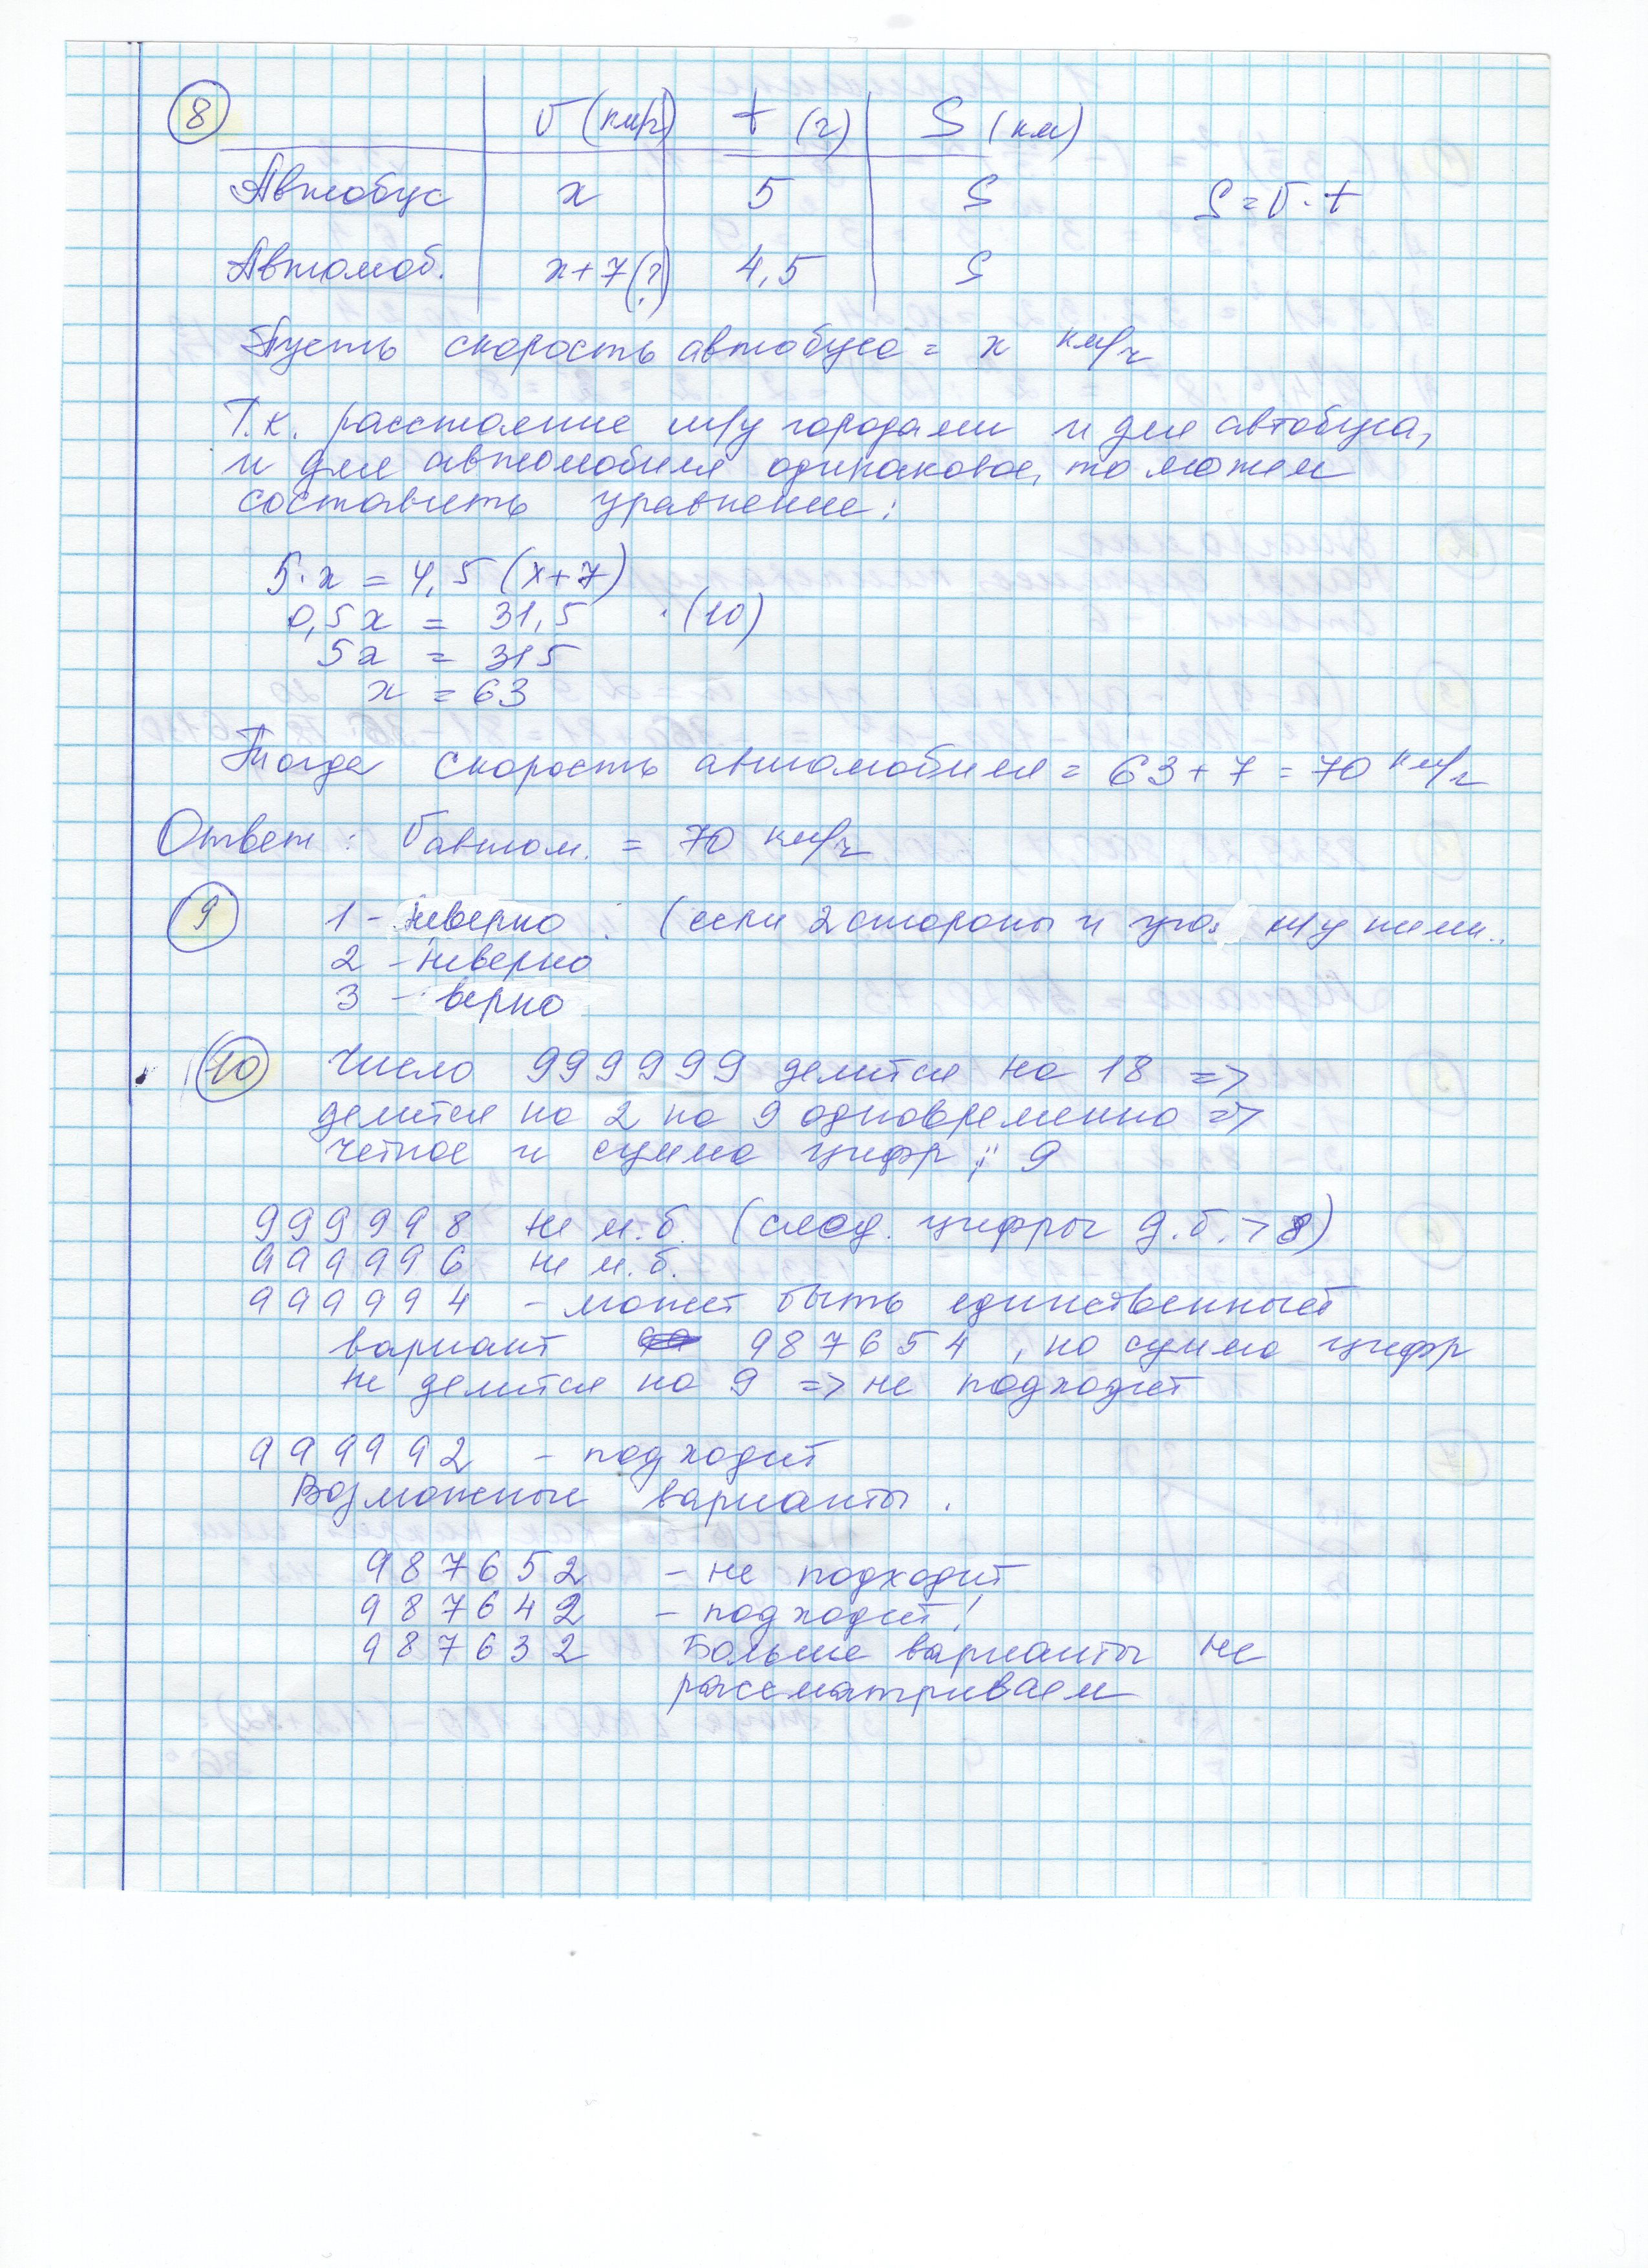 8 v (км/ч) t (ч) S (км)
Автобус x 5 S S = v · t
Автомоб. x+7(?) 4,5 S
Пусть скорость автобуса = x км/ч
Т.к. расстояние м/у городами и для автобуса,
и для автомобиля одинаковое, то можем
составить уравнение:
5·x = 4,5 (x+7)
0,5x = 31,5 ·(10)
5x = 315
x = 63
Тогда скорость автомобиля = 63 + 7 = 70 км/ч
Ответ: v автом. = 70 км/ч
9 1 - неверно (если 2 стороны и угол м/у ними..
2 - неверно
3 - верно
10 Число 999999 делится на 18 =>
делится на 2 на 9 одновременно =>
четное и сумма цифр ⋮ 9
999998 не м.б. (след. цифры д.б. > 8)
999996 не м.б.
999994 - может быть единственный
вариант 987654, но сумма цифр
не делится на 9 => не подходит
999992 - подходит
Возможные варианты.
987652 - не подходит
987642 - подходит!
987632 Больше варианты не
рассматриваем